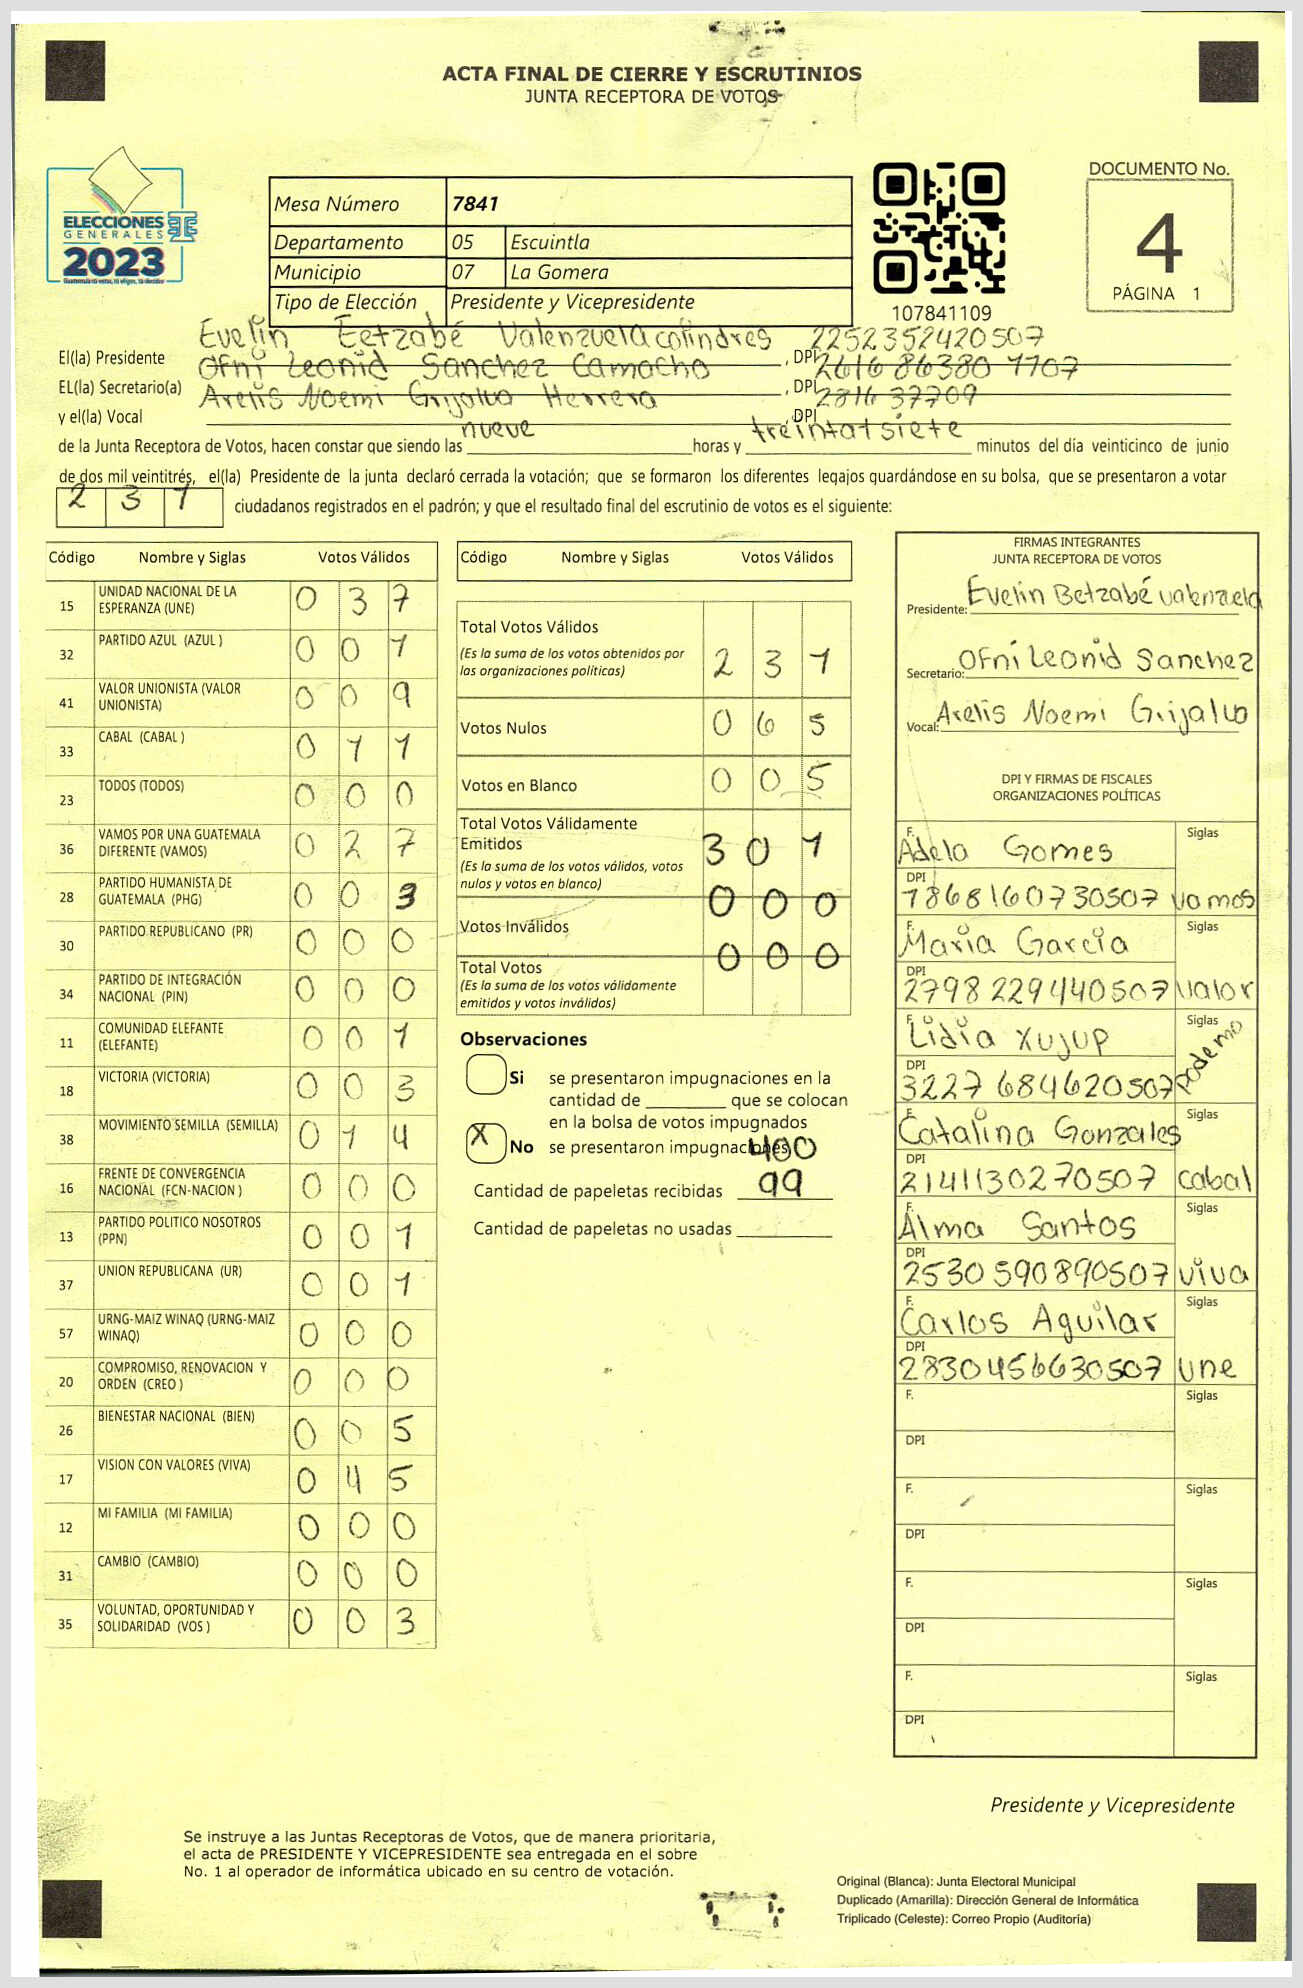 ACTA FINAL DE CIERRE Y ESCRUTINIOS
JUNTA RECEPTORA DE VOTOS
ELECCIONES
GENERALES
2023
Mesa Número 7841
Departamento 05 Escuintla
Municipio 07 La Gomera
Tipo de Elección Presidente y Vicepresidente
107841109
DOCUMENTO No.
4
PÁGINA 1
Evelin Eetzabé Valenzuela colindres 2252352420507
El(la) Presidente Ofni Leonid Sanchez Camacho , DPI 2616 86380 1707
EL(la) Secretario(a) Arelis Noemi Grijalva Herrera , DPI 2816 37709
y el(la) Vocal , DPI
de la Junta Receptora de Votos, hacen constar que siendo las nueve horas y treintatsiete minutos del día veinticinco de junio
de dos mil veintitrés, el(la) Presidente de la junta declaró cerrada la votación; que se formaron los diferentes legajos guardándose en su bolsa, que se presentaron a votar
2 3 1 ciudadanos registrados en el padrón; y que el resultado final del escrutinio de votos es el siguiente:
Código Nombre y Siglas Votos Válidos
15 UNIDAD NACIONAL DE LA ESPERANZA (UNE) 0 3 7
32 PARTIDO AZUL (AZUL ) 0 0 1
41 VALOR UNIONISTA (VALOR UNIONISTA) 0 0 9
33 CABAL (CABAL ) 0 1 1
23 TODOS (TODOS) 0 0 0
36 VAMOS POR UNA GUATEMALA DIFERENTE (VAMOS) 0 2 7
28 PARTIDO HUMANISTA DE GUATEMALA (PHG) 0 0 3
30 PARTIDO REPUBLICANO (PR) 0 0 0
34 PARTIDO DE INTEGRACIÓN NACIONAL (PIN) 0 0 0
11 COMUNIDAD ELEFANTE (ELEFANTE) 0 0 1
18 VICTORIA (VICTORIA) 0 0 3
38 MOVIMIENTO SEMILLA (SEMILLA) 0 1 4
16 FRENTE DE CONVERGENCIA NACIONAL (FCN-NACION ) 0 0 0
13 PARTIDO POLITICO NOSOTROS (PPN) 0 0 1
37 UNION REPUBLICANA (UR) 0 0 1
57 URNG-MAIZ WINAQ (URNG-MAIZ WINAQ) 0 0 0
20 COMPROMISO, RENOVACION Y ORDEN (CREO ) 0 0 0
26 BIENESTAR NACIONAL (BIEN) 0 0 5
17 VISION CON VALORES (VIVA) 0 4 5
12 MI FAMILIA (MI FAMILIA) 0 0 0
31 CAMBIO (CAMBIO) 0 0 0
35 VOLUNTAD, OPORTUNIDAD Y SOLIDARIDAD (VOS ) 0 0 3
Código Nombre y Siglas Votos Válidos
Total Votos Válidos 2 3 1
(Es la suma de los votos obtenidos por
las organizaciones políticas)
Votos Nulos 0 6 5
Votos en Blanco 0 0 5
Total Votos Válidamente
Emitidos 3 0 1
(Es la suma de los votos válidos, votos
nulos y votos en blanco)
0 0 0
Votos Inválidos
0 0 0
Total Votos
(Es la suma de los votos válidamente
emitidos y votos inválidos)
Observaciones
Si se presentaron impugnaciones en la
cantidad de ________ que se colocan
en la bolsa de votos impugnados
X No se presentaron impugnaciones
400
Cantidad de papeletas recibidas 99
Cantidad de papeletas no usadas
FIRMAS INTEGRANTES
JUNTA RECEPTORA DE VOTOS
Presidente: Evelin Betzabé valenzuela
Secretario: Ofni Leonid Sanchez
Vocal: Arelis Noemi Grijalva
DPI Y FIRMAS DE FISCALES
ORGANIZACIONES POLÍTICAS
F. Adela Gomes Siglas
DPI 1868160730507 vamos
F. Maria Garcia Siglas
DPI 2798 229440507 valor
F. Lidia xujup Siglas
DPI 3227 684620507 Podemo
F. Catalina Gonzales Siglas
DPI 2141130270507 cabal
F. Alma Santos Siglas
DPI 2530 590890507 viva
F. Carlos Aguilar Siglas
DPI 2830456630507 une
F. Siglas
DPI
F. Siglas
DPI
F. Siglas
DPI
F. Siglas
DPI
Presidente y Vicepresidente
Se instruye a las Juntas Receptoras de Votos, que de manera prioritaria,
el acta de PRESIDENTE Y VICEPRESIDENTE sea entregada en el sobre
No. 1 al operador de informática ubicado en su centro de votación.
Original (Blanca): Junta Electoral Municipal
Duplicado (Amarilla): Dirección General de Informática
Triplicado (Celeste): Correo Propio (Auditoría)